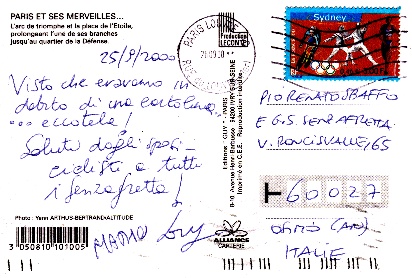 PARIS ET SES MERVEILLES...
L'arc de triomphe et la place de l'Etoile,
prolongeant l'une de ses branches
jusqu'au quartier de la Défense.
25/9/2000
Visto che eravamo in
debito di una cartolina
... eccotela!
Saluti dagli spost
ciclisti a tutti
i senzafretta!
Photo : Yann ARTHUS-BERTRAND/ALTITUDE
3 050810 101005
Production
LECONTE
Editions "GUY" - PARIS
8-10 Avenue Henri-Barbusse - 94200 IVRY-SUR-SEINE
Imprimé en C.E.E.
ALLIANCE
CARTERIE
PARIS LOUVRE
Sydney
PIO RENATO
E G.S. SENZAFRETTA
V. RONCISVALLE, 65
60027
OSIMO (AN)
ITALIE